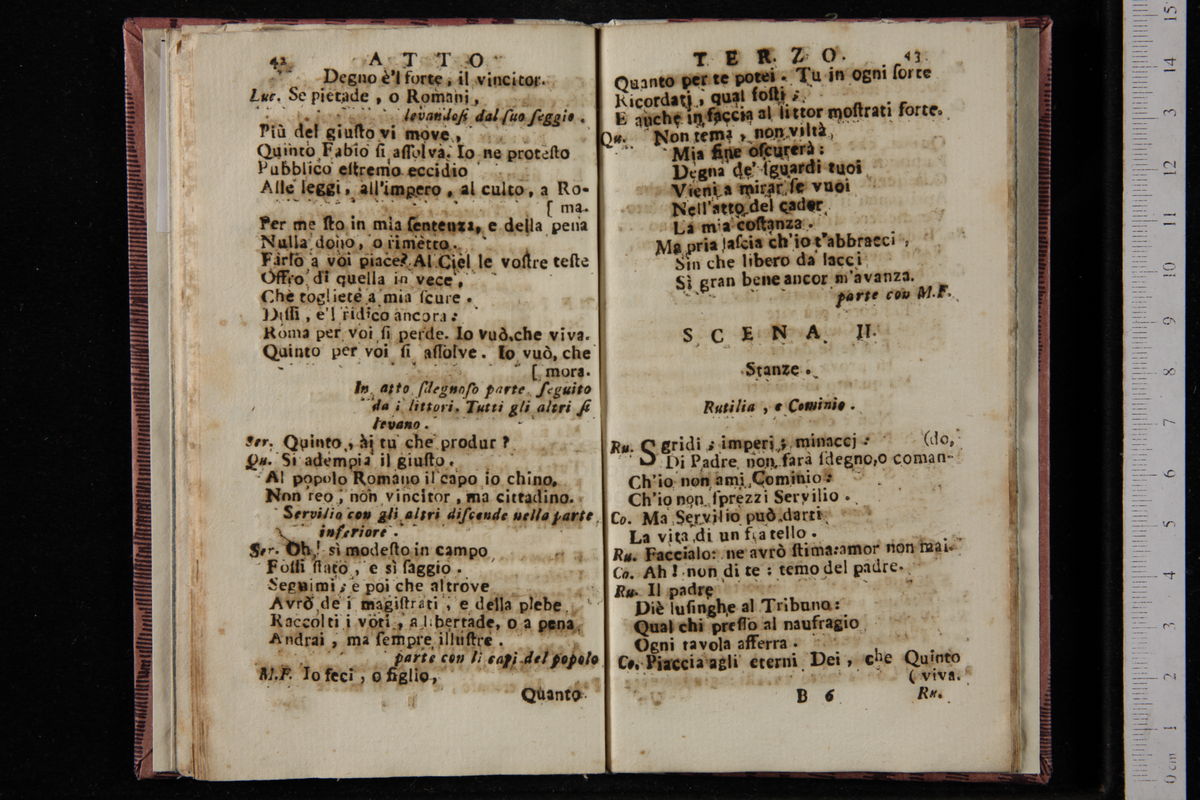 42 ATTO
Degno è'l forte, il vincitor.
Luc. Se pietade, o Romani,
levandoſi dal ſuo ſeggio.
Più del giuſto vi move,
Quinto Fabio ſi aſſolva. Io ne proteſto
Pubblico eſtremo eccidio
Alle leggi, all'impero, al culto, a Ro-
[ ma.
Per me ſto in mia ſentenza, e della pena
Nulla dono, o rimetto.
Farſo a voi piace? Al Ciel le voſtre teſte
Offro di quella in vece,
Che togliete a mia ſcure.
Diſſi, e'l ridico ancora:
Roma per voi ſi perde. Io vuò, che viva.
Quinto per voi ſi aſſolve. Io vuò, che
[ mora.
In atto ſdegnoſo parte ſeguito
da i littori. Tutti gli altri ſi
levano.
Ser. Quinto, ài tu che produr?
Qu. Si adempia il giuſto.
Al popolo Romano il capo io chino,
Non reo, non vincitor, ma cittadino.
Servilio con gli altri diſcende nella parte
inferiore.
Ser. Oh! sì modeſto in campo
Foſſi ſtato, e sì ſaggio.
Seguimi; e poi che altrove
Avrò de i magiſtrati, e della plebe
Raccolti i voti, a libertade, o a pena
Andrai, ma ſempre illuſtre.
parte con li capi del popolo
M.F. Io feci, o figlio,
Quanto
TERZO. 43
Quanto per te potei. Tu in ogni ſorte
Ricordati, qual foſti;
E anche in faccia al littor moſtrati forte.
Qu. Non tema, non viltà,
Mia fine oſcurerà:
Degna de' ſguardi tuoi
Vieni a mirar ſe vuoi
Nell'atto del cader
La mia coſtanza.
Ma pria laſcia ch'io t'abbracci,
Sin che libero da' lacci
Sì gran bene ancor m'avanza.
parte con M.F.
SCENA II.
Stanze.
Rutilia, e Cominio.
Ru. Sgridi; imperi; minacci: (do,
Di Padre non farà ſdegno, o coman-
Ch'io non ami Cominio:
Ch'io non ſprezzi Servilio.
Co. Ma Servilio può darti
La vita di un fratello.
Ru. Faccialo: ne avrò ſtima: amor non mai.
Co. Ah! non di te: temo del padre.
Ru. Il padre
Diè luſinghe al Tribuno:
Qual chi preſſo al naufragio
Ogni tavola afferra.
Co. Piaccia agli eterni Dei, che Quinto
( viva.
B 6 Ru.